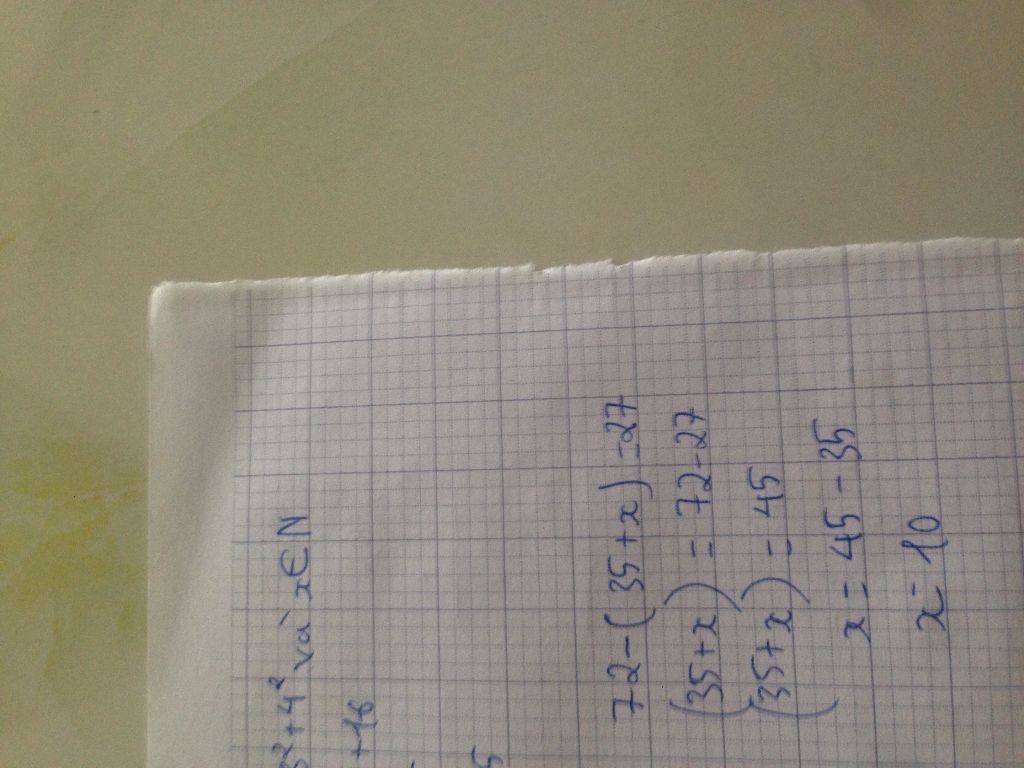 3²+4² và x∈N
+16
5
72-(35+x)=27
(35+x)=72-27
(35+x)=45
x=45-35
x=10